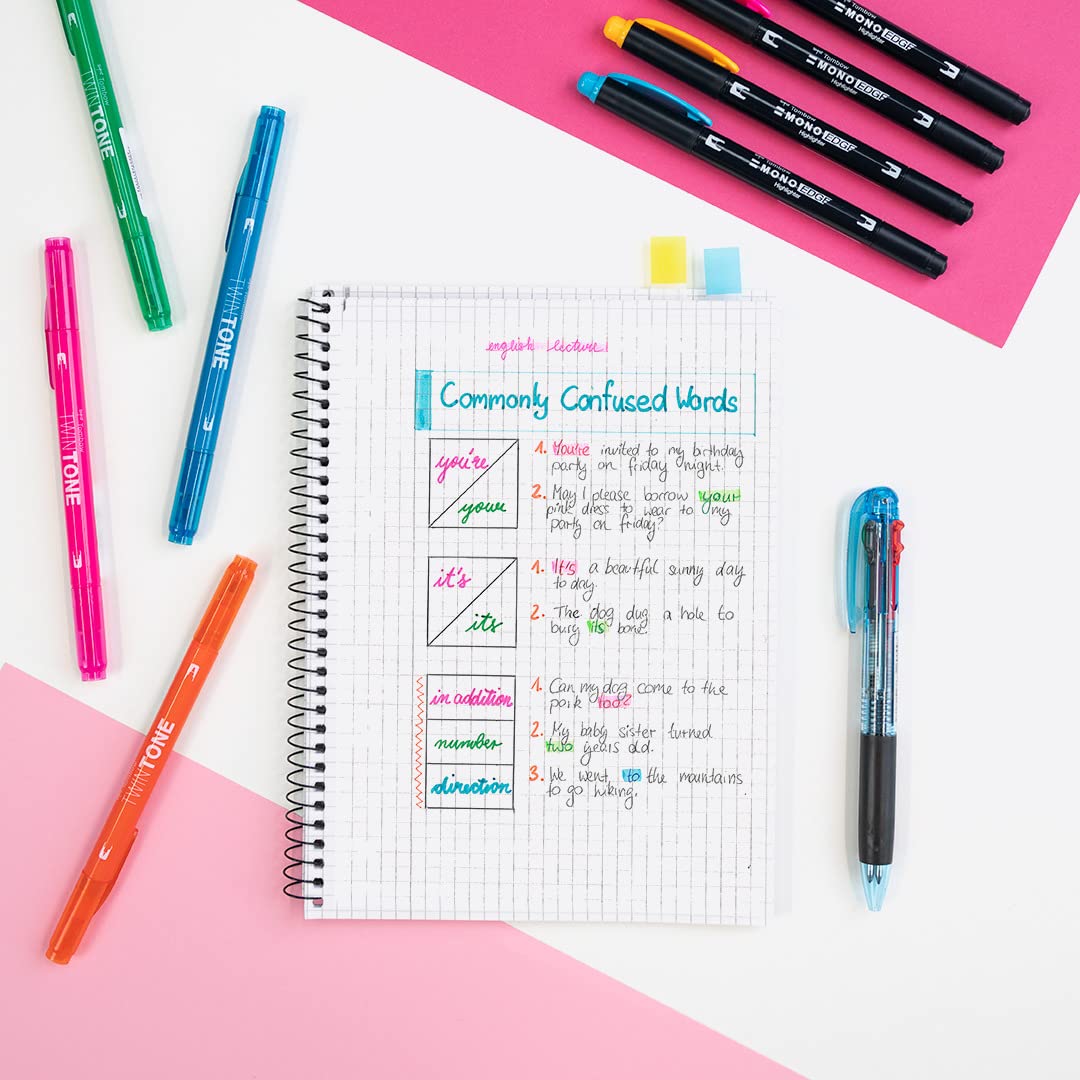 Tombow
MONO EDGE
Highlighter
Tombow
MONO EDGE
Highlighter
Tombow
MONO EDGE
Highlighter
Tombow
MONO EDGE
Highlighter
Tombow
TWINTONE
TWINTONE
Tombow
TWINTONE
TWINTONE
english lecture
Commonly Confused Words
you're
your
1. You're invited to my birthday
party on friday night.
2. May I please borrow your
pink dress to wear to my
party on friday?
it's
its
1. It's a beautiful sunny day
today.
2. The dog dug a hole to
bury its bone.
in addition
number
direction
1. Can my dog come to the
park too?
2. My baby sister turned
two years old.
3. We went to the mountains
to go hiking.